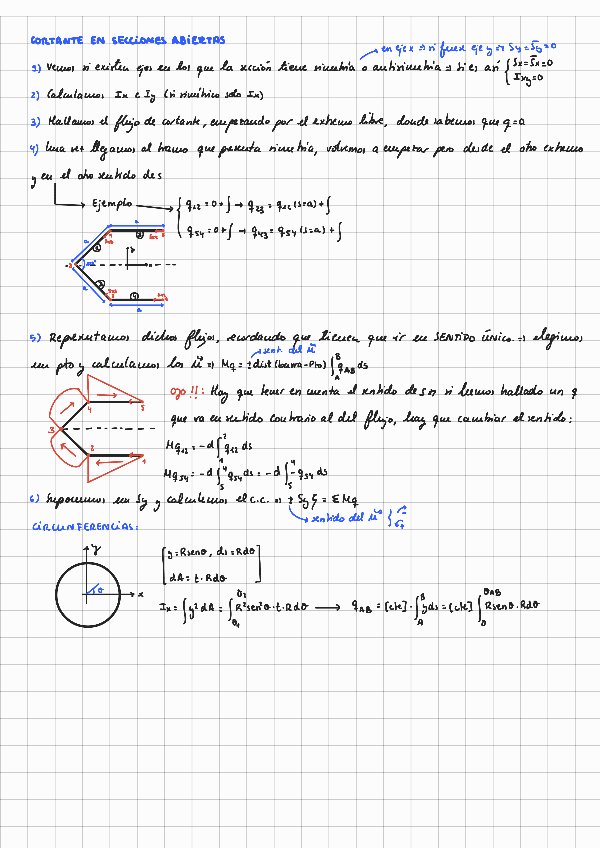 CORTANTE EN SECCIONES ABIERTAS
en eje x ⇒ si fuese eje y ⇒ Sy = S̄y = 0
1) Vemos si existen ejes en los que la sección tiene simetría o antisimetría ⇒ si es así { Sx = S̄x = 0
Ixy = 0
2) Calculamos Ix e Iy (si simétrico solo Ix)
3) Hallamos el flujo de cortante, empezando por el extremo libre, donde sabemos que q=0
4) Una vez llegamos al tramo que presenta simetría, volvemos a empezar pero desde el otro extremo
y en el otro sentido de s
Ejemplo { q12 = 0 + ∫ → q23 = q12 (s=a) + ∫
q54 = 0 + ∫ → q43 = q54 (s=a) + ∫
5) Representamos dichos flujos, recordando que tienen que ir en SENTIDO ÚNICO ⇒ elegimos
sent. del M
un pto y calculamos los M ⇒ Mq = ± dist (barra-Pto) ∫AB qAB ds
OJO!!: Hay que tener en cuenta el sentido de s ⇒ si hemos hallado un q
que va en sentido contrario al del flujo, hay que cambiar el sentido:
Mq12 = -d ∫12 q12 ds
Mq54 = -d ∫54 q54 ds = -d ∫54 -q54 ds
6) Suponemos un Sy y calculamos el c.c. ⇒ ± Sy ξ = Σ Mq
sentido del M
CIRCUNFERENCIAS:
y
θ
x
[ y = Rsenθ, ds = Rdθ
dA = t·Rdθ ]
Ix = ∫ y² dA = ∫θ1θ2 R²sen²θ·t·Rdθ → qAB = [cte]·∫AB y ds = [cte] ∫0θAB Rsenθ·Rdθ